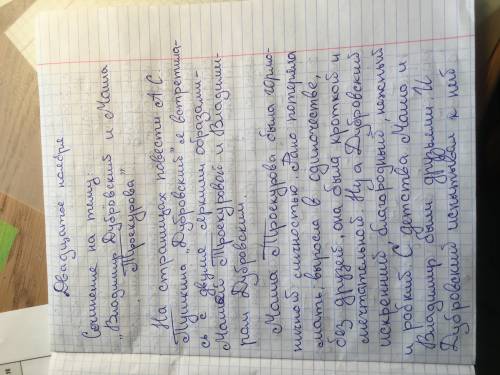 Двадцатое ноября
Сочинение на тему:
„Владимир Дубровский и Маша
Троекурова"
На страницах повести А. С.
Пушкина „Дубровский" я встретила-
сь с двумя яркими образами-
Машей Троекуровой и Владими-
ром Дубровским.
Маша Троекурова была гармо-
ничной личностью. Рано потеряла
мать, выросла в одиночестве,
без друзей. она была кроткой и
мечтательной. Ну а Дубровский
искренний, благородный, нежный
и робкий. С детства, Маша и
Владимир были друзьями. И
Дубровский испытывал к ней